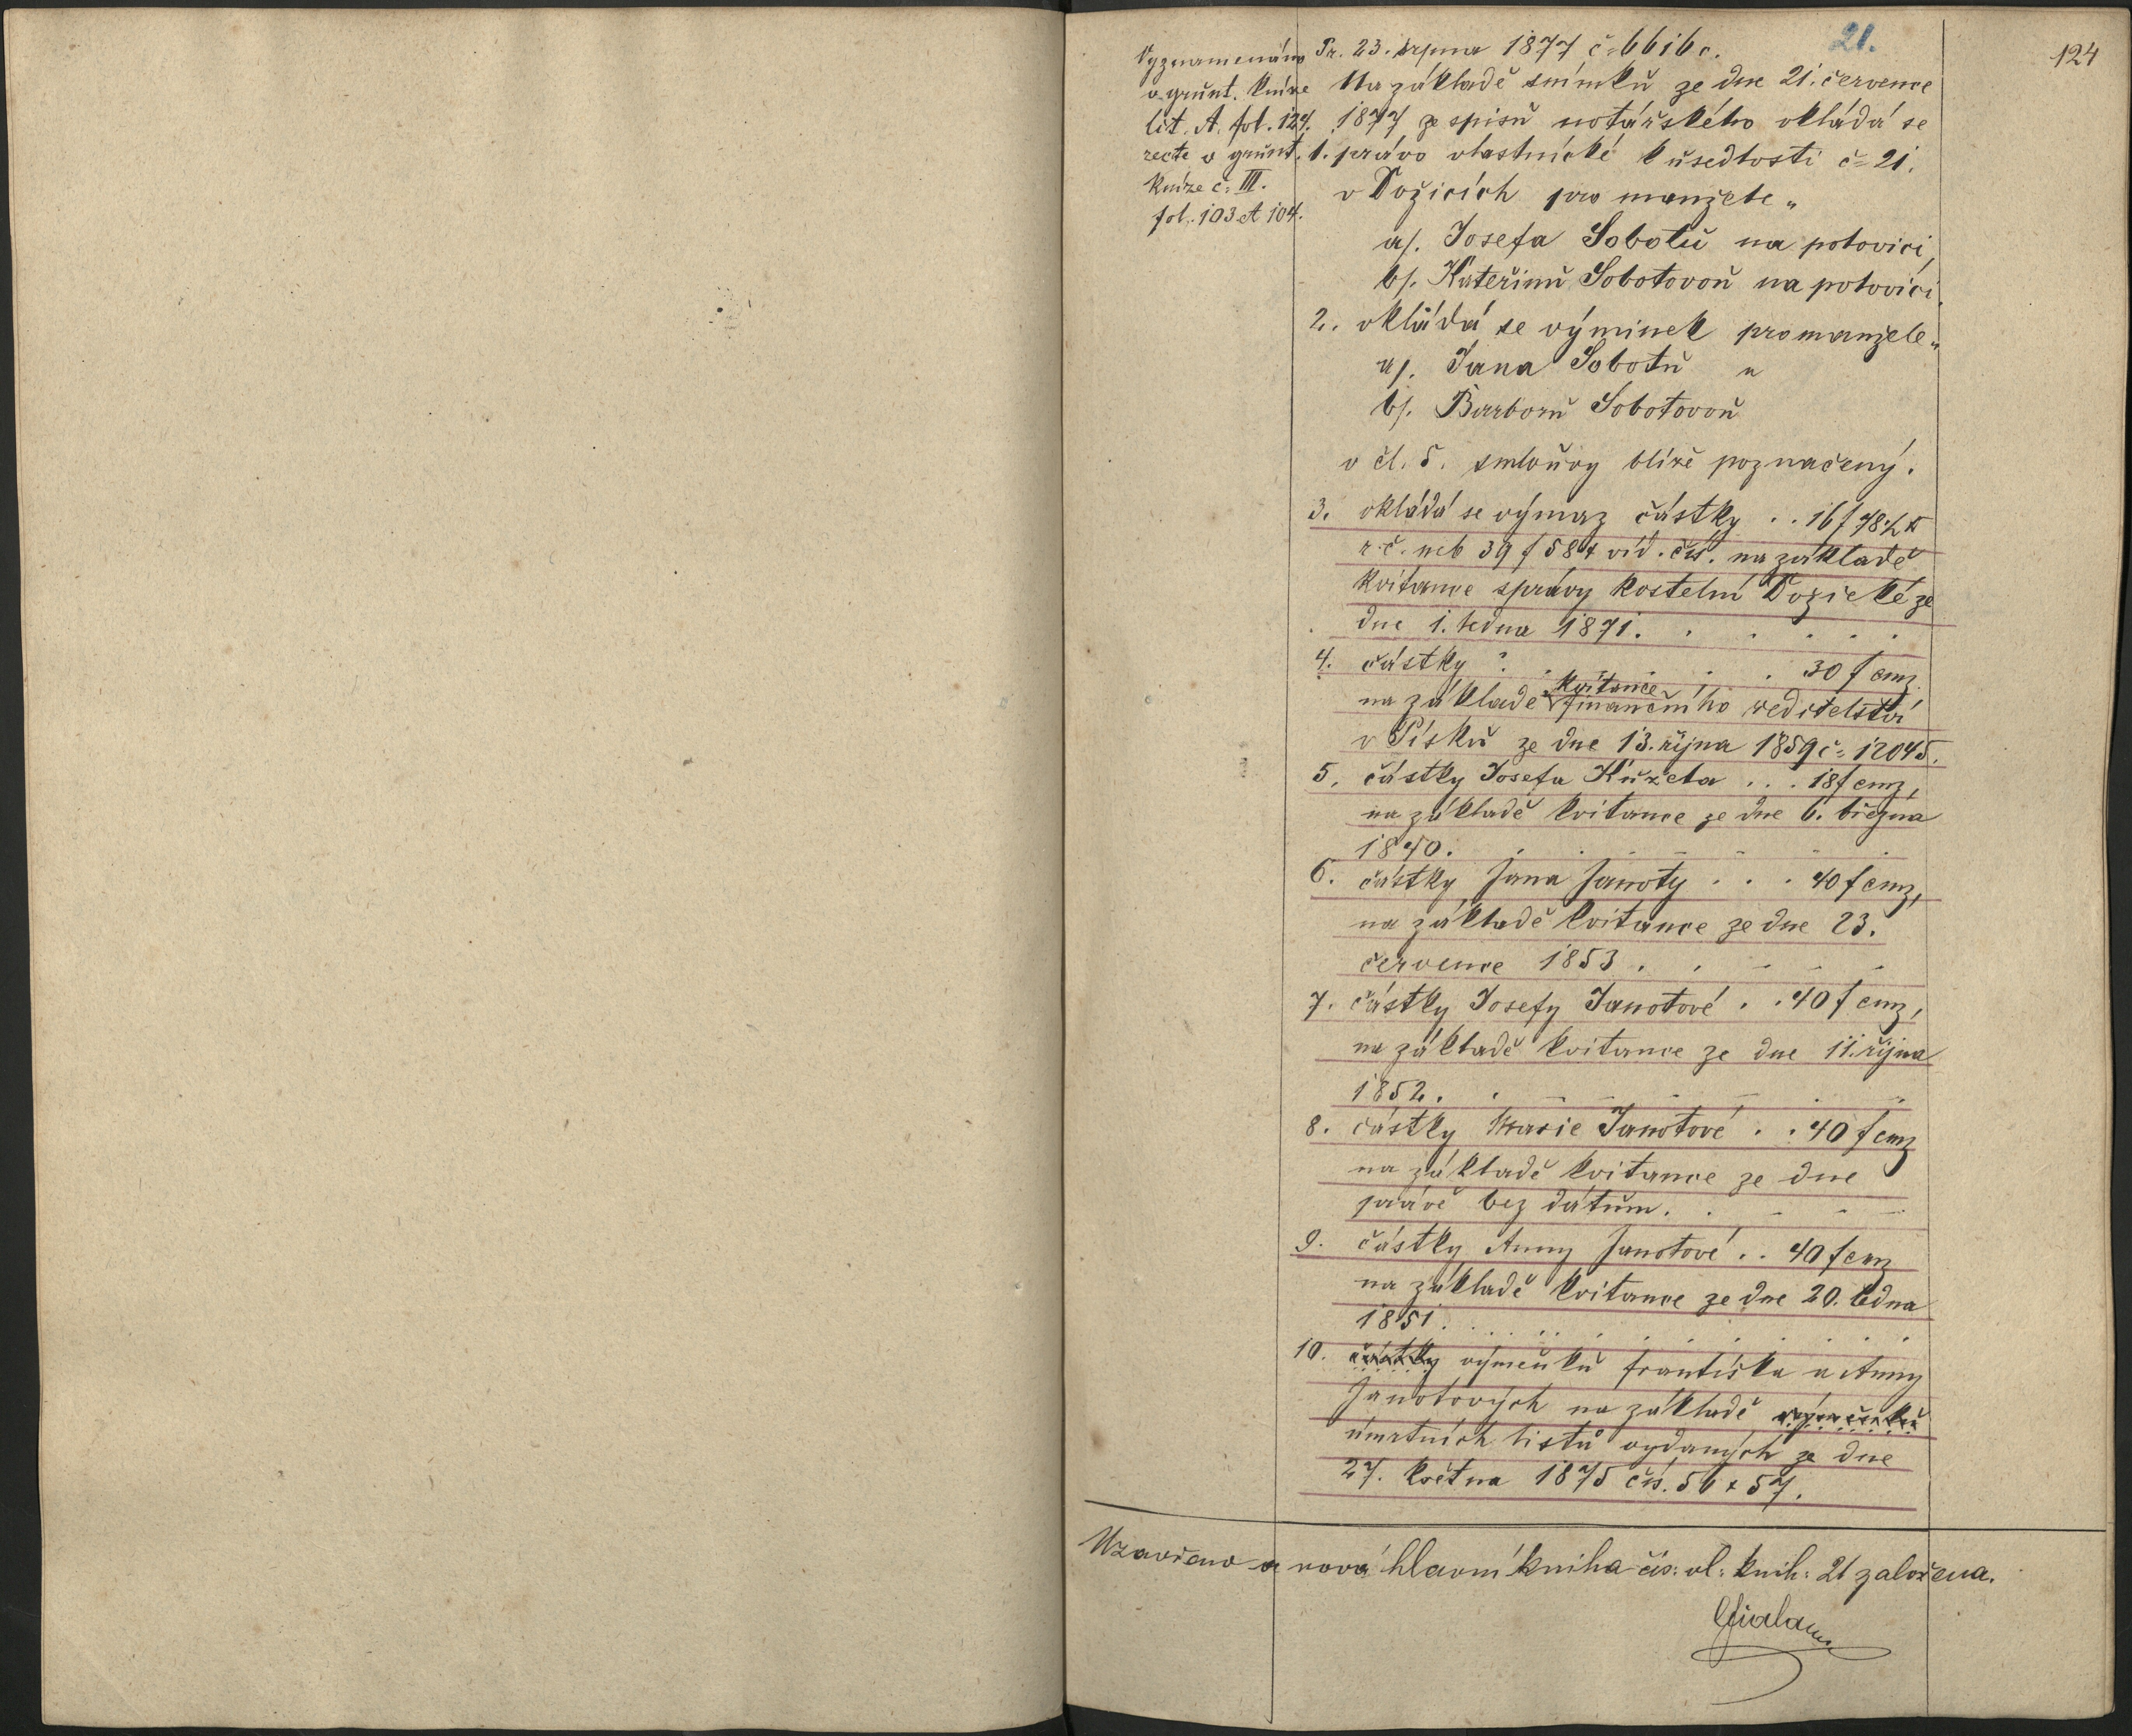 21.
124
Vyznamenáno
v grunt. knize
lit. A. fol. 124.
recte v grunt.
knize č: III.
fol. 103 et 104.
Pr. 23. srpna 1877 č: 6616 c.
Na základě snímku ze dne 21. července
1877 ze spisu notářského vkládá se
1. právo vlastnické k usedlosti č: 21.
v Dožicích pro manžele„
a/. Josefa Sobotu na polovici,
b/. Kateřinu Sobotovou na polovici.
2. vkládá se výminek pro manžele„
a/. Jana Sobotu a
b/. Barboru Sobotovou
v čl. 5. smlouvy blíže poznačený.
3. vkládá se výmaz částky . . 16 f 48½ x
r. č. neb 39 f 58 x víd. čís. na základě
kvitance správy kostelní Dožické ze
dne 1. ledna 1871. . . . . .
4. částky . . . . . 30 f cmz
kvitance
na základě finančního ředitelství
v Písku ze dne 13. října 1859 č: 12045.
5. částky Josefa Kužela . . . 18 f cmz,
na základě kvitance ze dne 6. března
1840. . . . . . .
6. částky Jana Janoty . . . 40 f cmz,
na základě kvitance ze dne 23.
července 1853 . . . . .
7. částky Josefy Janotové . . 40 f cmz,
na základě kvitance ze dne 11. října
1852. . . . . . .
8. částky Marie Janotové . . 40 f cmz
na základě kvitance ze dne
právě bez dátum. . . . .
9. částky Anny Janotové . . 40 f cmz
na základě kvitance ze dne 20. ledna
1851. . . . . . . . .
10. částky výměnku Františka a Anny
Janotových na základě výměnku
úmrtních listů vydaných ze dne
27. května 1875 čís. 56 & 57.
Uzavřeno a nová hlavní kniha čís: vl: knih: 21 založena.